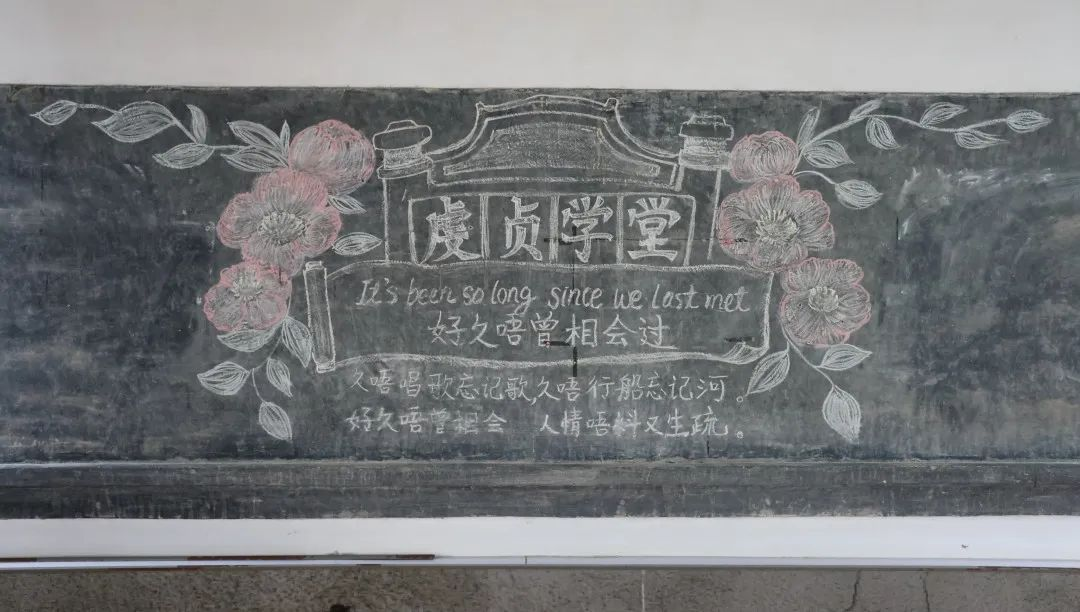 虔贞学堂
It's been so long since we last met
好久唔曾相会过
久唔唱歌忘记歌,久唔行船忘记河。
好久唔曾相会 人情唔料又生疏。